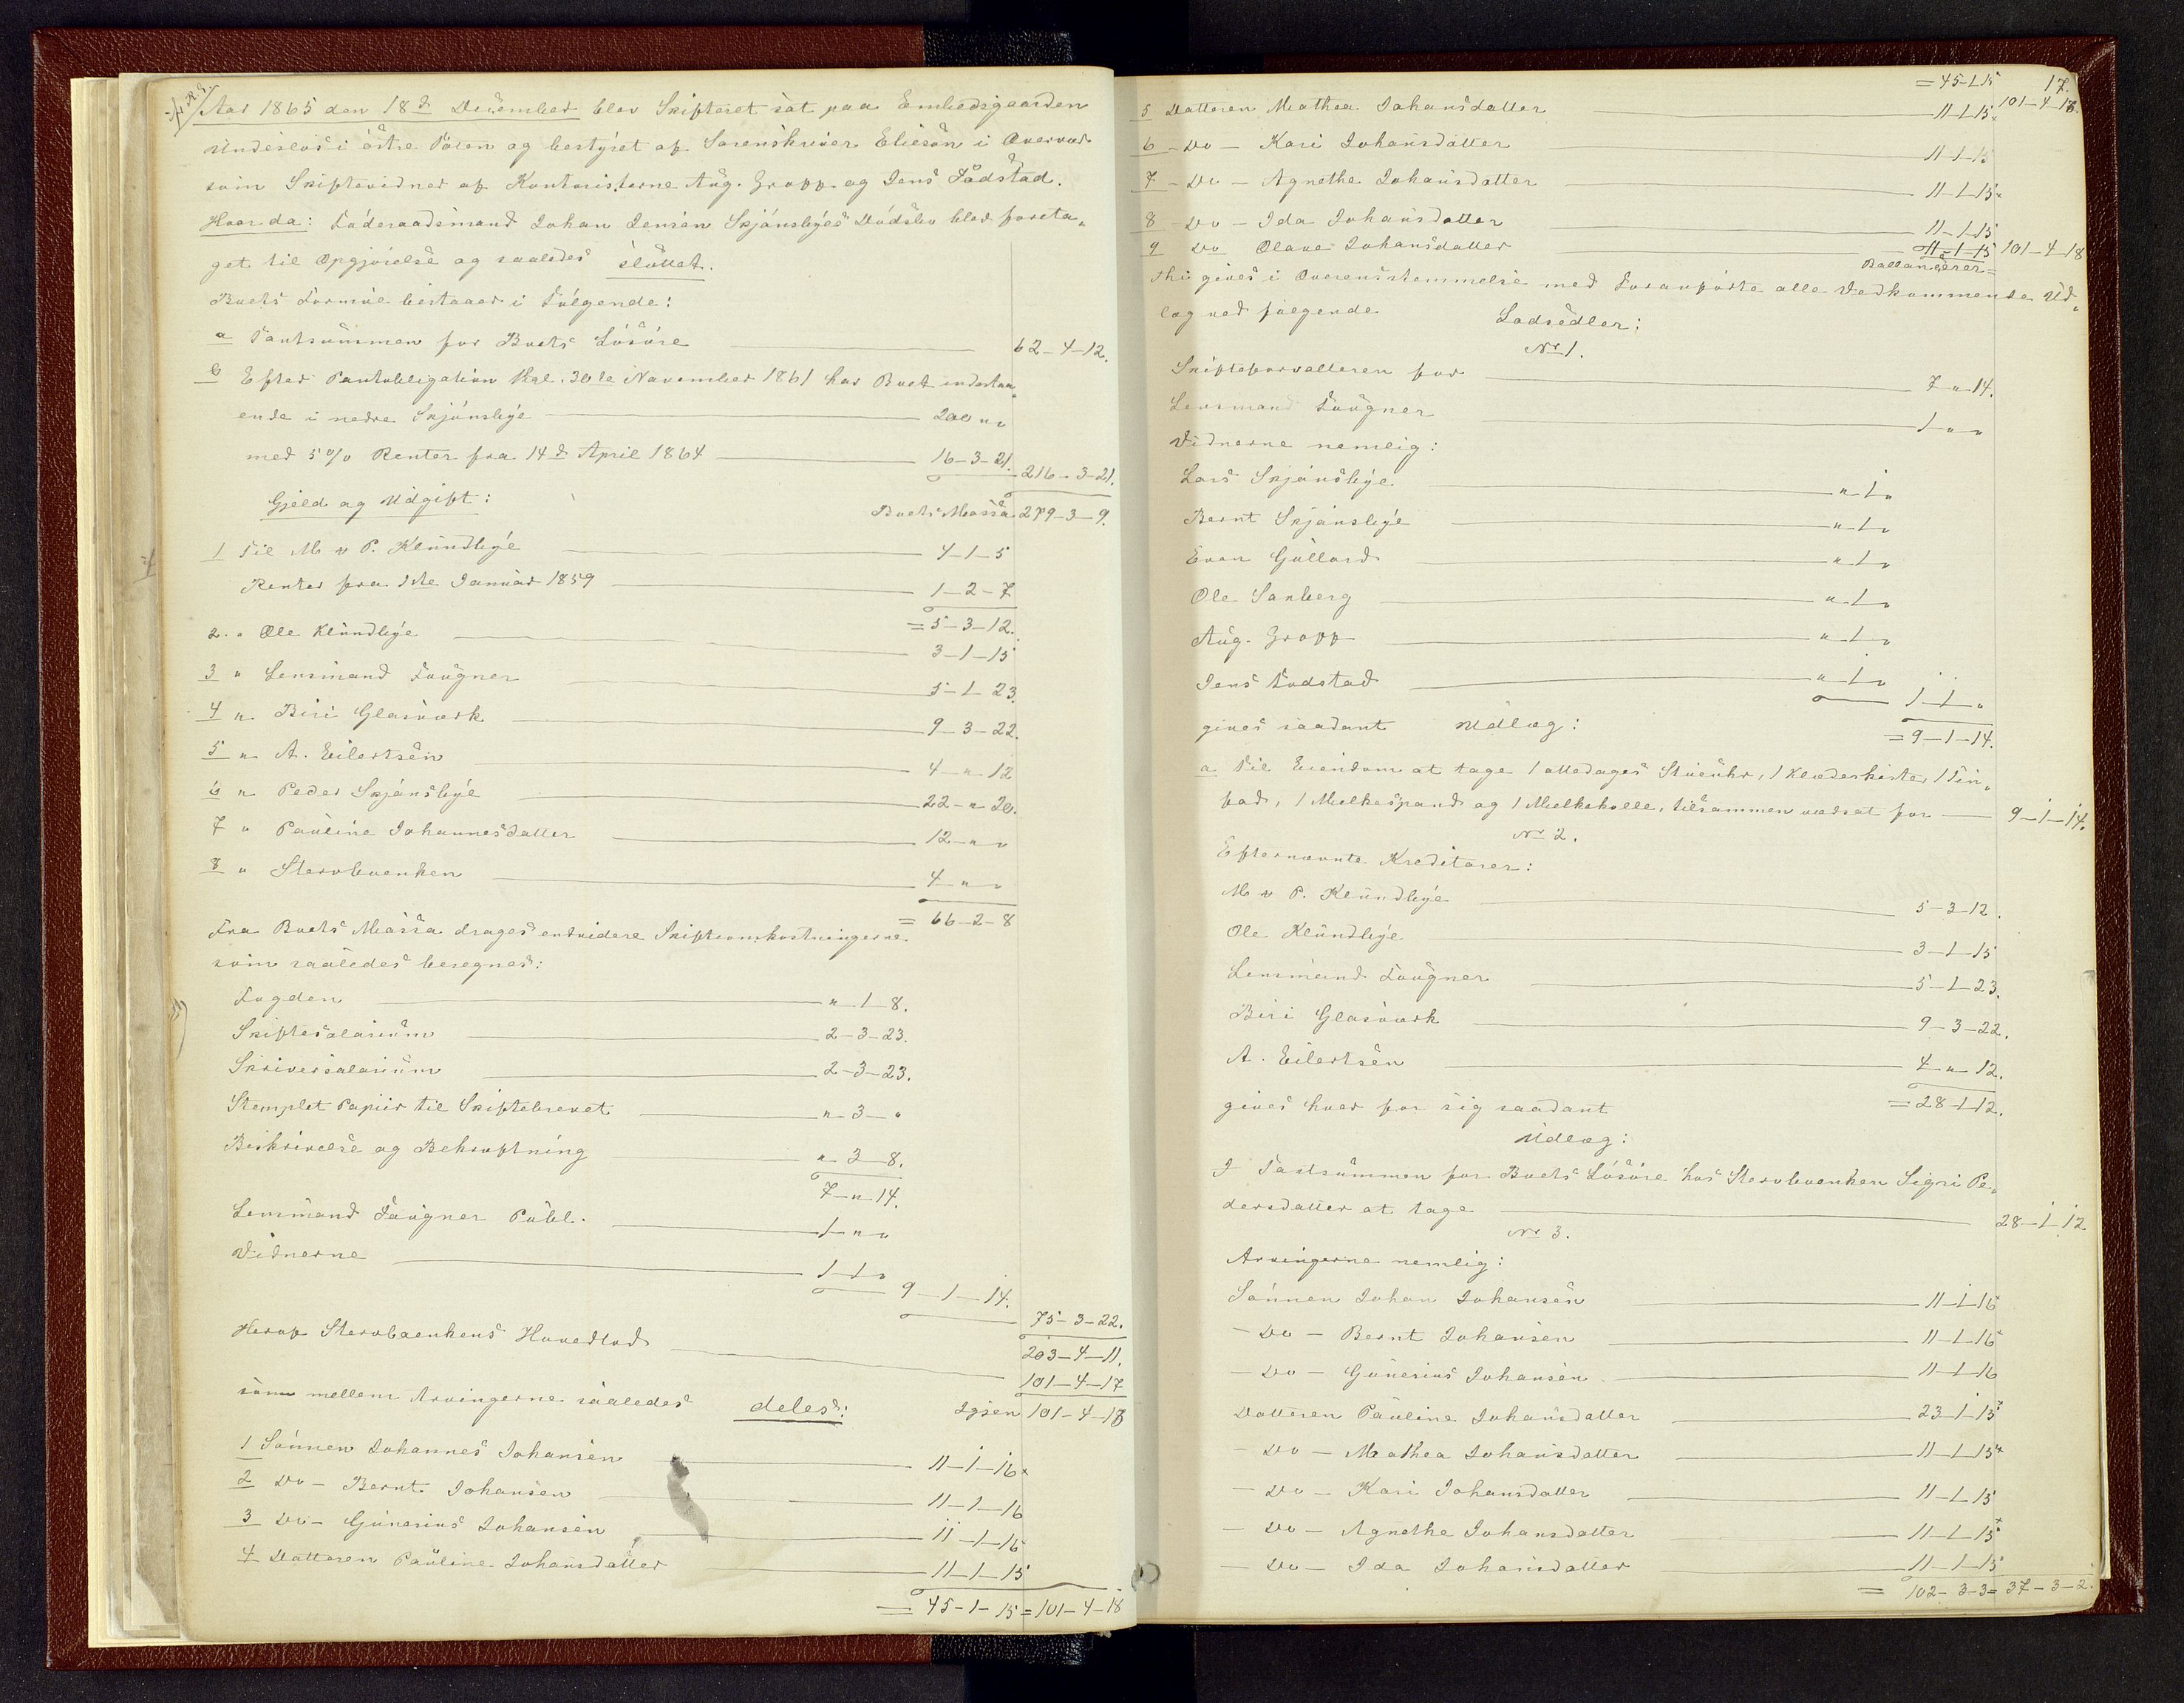 Aar 1865 den 18de December blev Skifteret sat paa Embedsgaarden
Undeslös i östre Toten og bestyret af Sorenskriver Elieson i Overvær
som Skiftevidner af Kontoristerne Aug. Gropp og Jens Fodstad.
Hvor da: Föderaadsmand Johan Jensen Skjönsbyes Dödsbo blev foreta-
get til Opgjörelse og saaledes sluttet.
Boets Formue bestaaer i Fölgende:
a Pantsummen for Boets Lösöre 62-4-12.
b Efter Pantobligation thgl. 30te November 1861 har Boet indestaa-
ende i nedre Skjönsbye 200 " "
med 5% Renter fra 14de April 1864 16-3-21. 216-3-21.
Gjeld og Udgift: Boets Massa 279-3-9.
1 Til M v P. Klundbye 4-1-5
Renter fra 1ste Januar 1859 1-2-7
=5-3-12.
2. " Ole Klundbye 3-1-15
3 " Lensmand Fougner 5-1-23.
4 " Biri Glasværk 9-3-22.
5 " A. Eilertsen 4-"-12
6 " Peder Skjönsbye 22-"-20.
7 " Pauline Johannesdatter 12-" "
8 " Stervboenken 4-" "
= 66-2-8
Fra Boets Massa drages endvidere Skifteomkostningerne
som saaledes beregnes:
Fogden "-1-8.
Skiftesalarium 2-3-23.
Skriversalarium 2-3-23.
Stemplet Papiir til Skiftebrevet "-3-"
Beskrivelse og Bekræftning "-3-8.
7-"-14.
Lensmand Fougner Publ. 1-" "
Vidnerne 1-1-" 9-1-14.
75-3-22.
203-4-11.
Heraf Stervboenkens Hovedlod 101-4-17
Igjen 101-4-18
som mellem Arvingerne saaledes deles:
1 Sönnen Johannes Johansen 11-1-16
2 Do - Bernt Johansen 11-1-16
3 Do - Gunerius Johansen 11-1-16
4 Datteren Pauline Johansdatter 11-1-15
= 45-1-15 = 101-4-18
=45-1-15 17.
5 Datteren Mathea Johansdatter 11-1-15 101-4-18.
6 - Do - Kari Johansdatter 11-1-15
7 - Do - Agnethe Johansdatter 11-1-15
8 - Do - Ida Johansdatter 11-1-15
9 Do Olave Johansdatter 11-1-15 101-4-18
Ballancerer=
thi gives i Overensstemmelse med Foranförte alle Vedkommende Ud-
læg ved fölgende Lodsedler:
No 1.
Skifteforvalteren for 7-"-14.
Lensmand Fougner 1-" "
Vidnerne nemlig:
Lars Skjönsbye "-1-"
Bernt Skjönsbye "-1-"
Even Gullord "-1-"
Ole Sanberg "-1-"
Aug. Gropp "-1-"
Jens Fodstad "-1-" 1-1-"
gives saadant Udlæg: =9-1-14.
a Til Eiendom at tage 1 ottedages Stueuhr, 1 Klædeskiste, 1 Tin-
fad, 1 Melkespand og 1 Melkekolle, tilsammen værdsat for 9-1-14.
No 2.
Efternævnte Kreditorer:
M v P. Klundbye 5-3-12.
Ole Klundbye 3-1-15
Lensmand Fougner 5-1-23.
Biri Glasværk 9-3-22.
A. Eilertsen 4-"-12.
gives hver for sig saadant =28-1-12.
Udlæg:
I Taxtsummen for Boets Lösöre hos Stervboenken Sigri Pe-
dersdatter at tage 28-1-12
No 3.
Arvingerne nemlig:
Sönnen Johan Johansen 11-1-16
- Do - Bernt Johansen 11-1-16
- Do - Gunerius Johansen 11-1-16
Datteren Pauline Johansdatter 23-1-15
- Do - Mathea Johansdatter 11-1-15
- Do - Kari Johansdatter 11-1-15
- Do - Agnethe Johansdatter 11-1-15
- Do - Ida Johansdatter 11-1-15
= 102-3-3= 37-3-2.